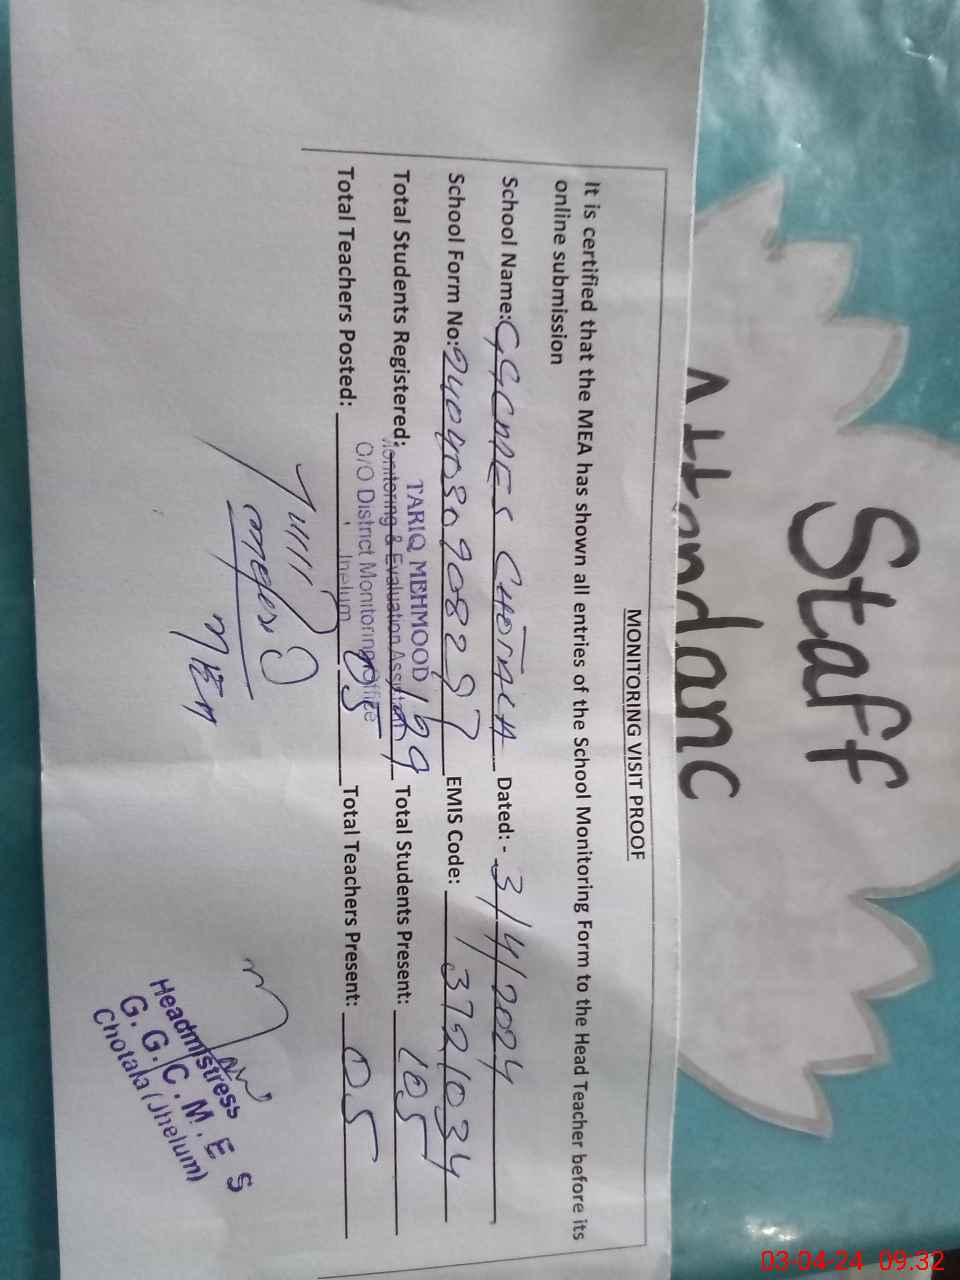 Staff
Attendanc
MONITORING VISIT PROOF
It is certified that the MEA has shown all entries of the School Monitoring Form to the Head Teacher before its
online submission
School Name: GGCMES CHOTALA Dated: - 3/4/2024
School Form No: EMIS Code: 3721034
Total Students Registered: 199 Total Students Present: 105
Total Teachers Posted: 05 Total Teachers Present: 05
TARIQ MEHMOOD
Monitoring & Evaluation Assistant
O/O District Monitoring Office
Jhelum
MEA
Headmistress
G.G.C.M.E S
Chotala (Jhelum)
03-04-24 09.32